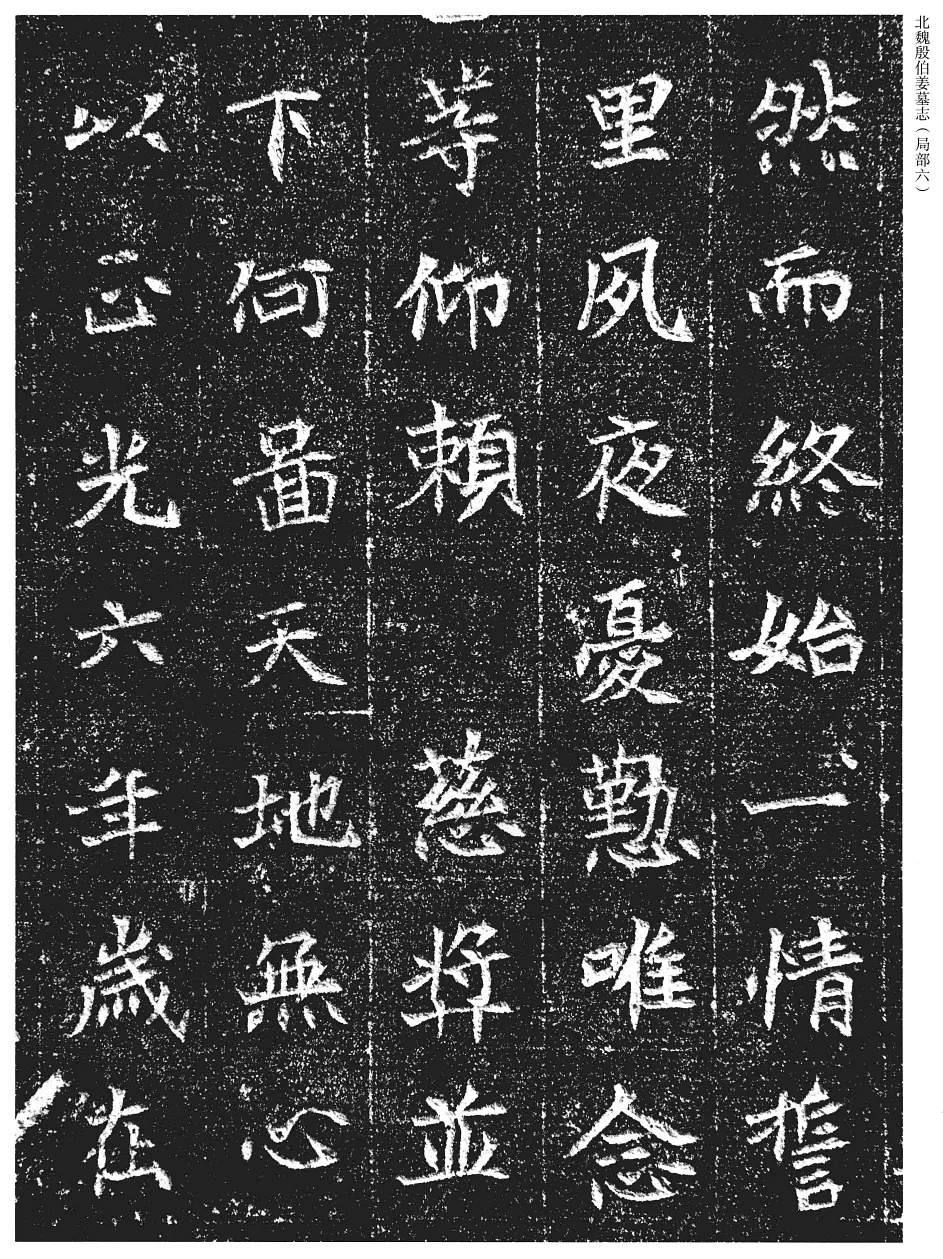 北魏殷伯姜墓志（局部六）
然而終始一情誓
里夙夜憂懃唯念
等仰賴慈將並
下何啚天地無心
以正光六年歲在